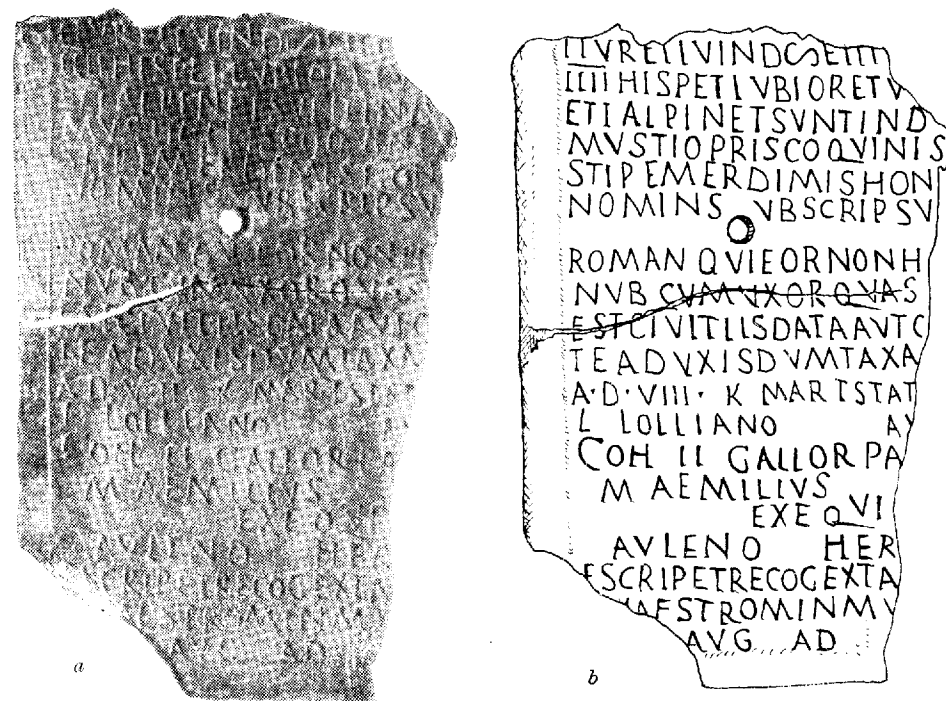 II VRETI VINDC SETIII
IIII HISPETI VBIORETV
ETI ALPINETSVNTIND
MVSTIOPRISCOQVINIS
STIPEMERDIMISHON
NOMINS VBSCRIPSV
ROMAN QVIEORNONH
NVBCVMVXORQVAS
ESTCIVITIISDATAAVTC
TEADVXISDVMTAXA
A·D·VIII· K MARTSTAT
L LOLLIANO AV
COH II GALLOR PA
M AEMILIVS
EXEQVI
AVLENO HER
ESCRIPETRECOGEXTA
AESTROMINMV
AVG AD
a
b